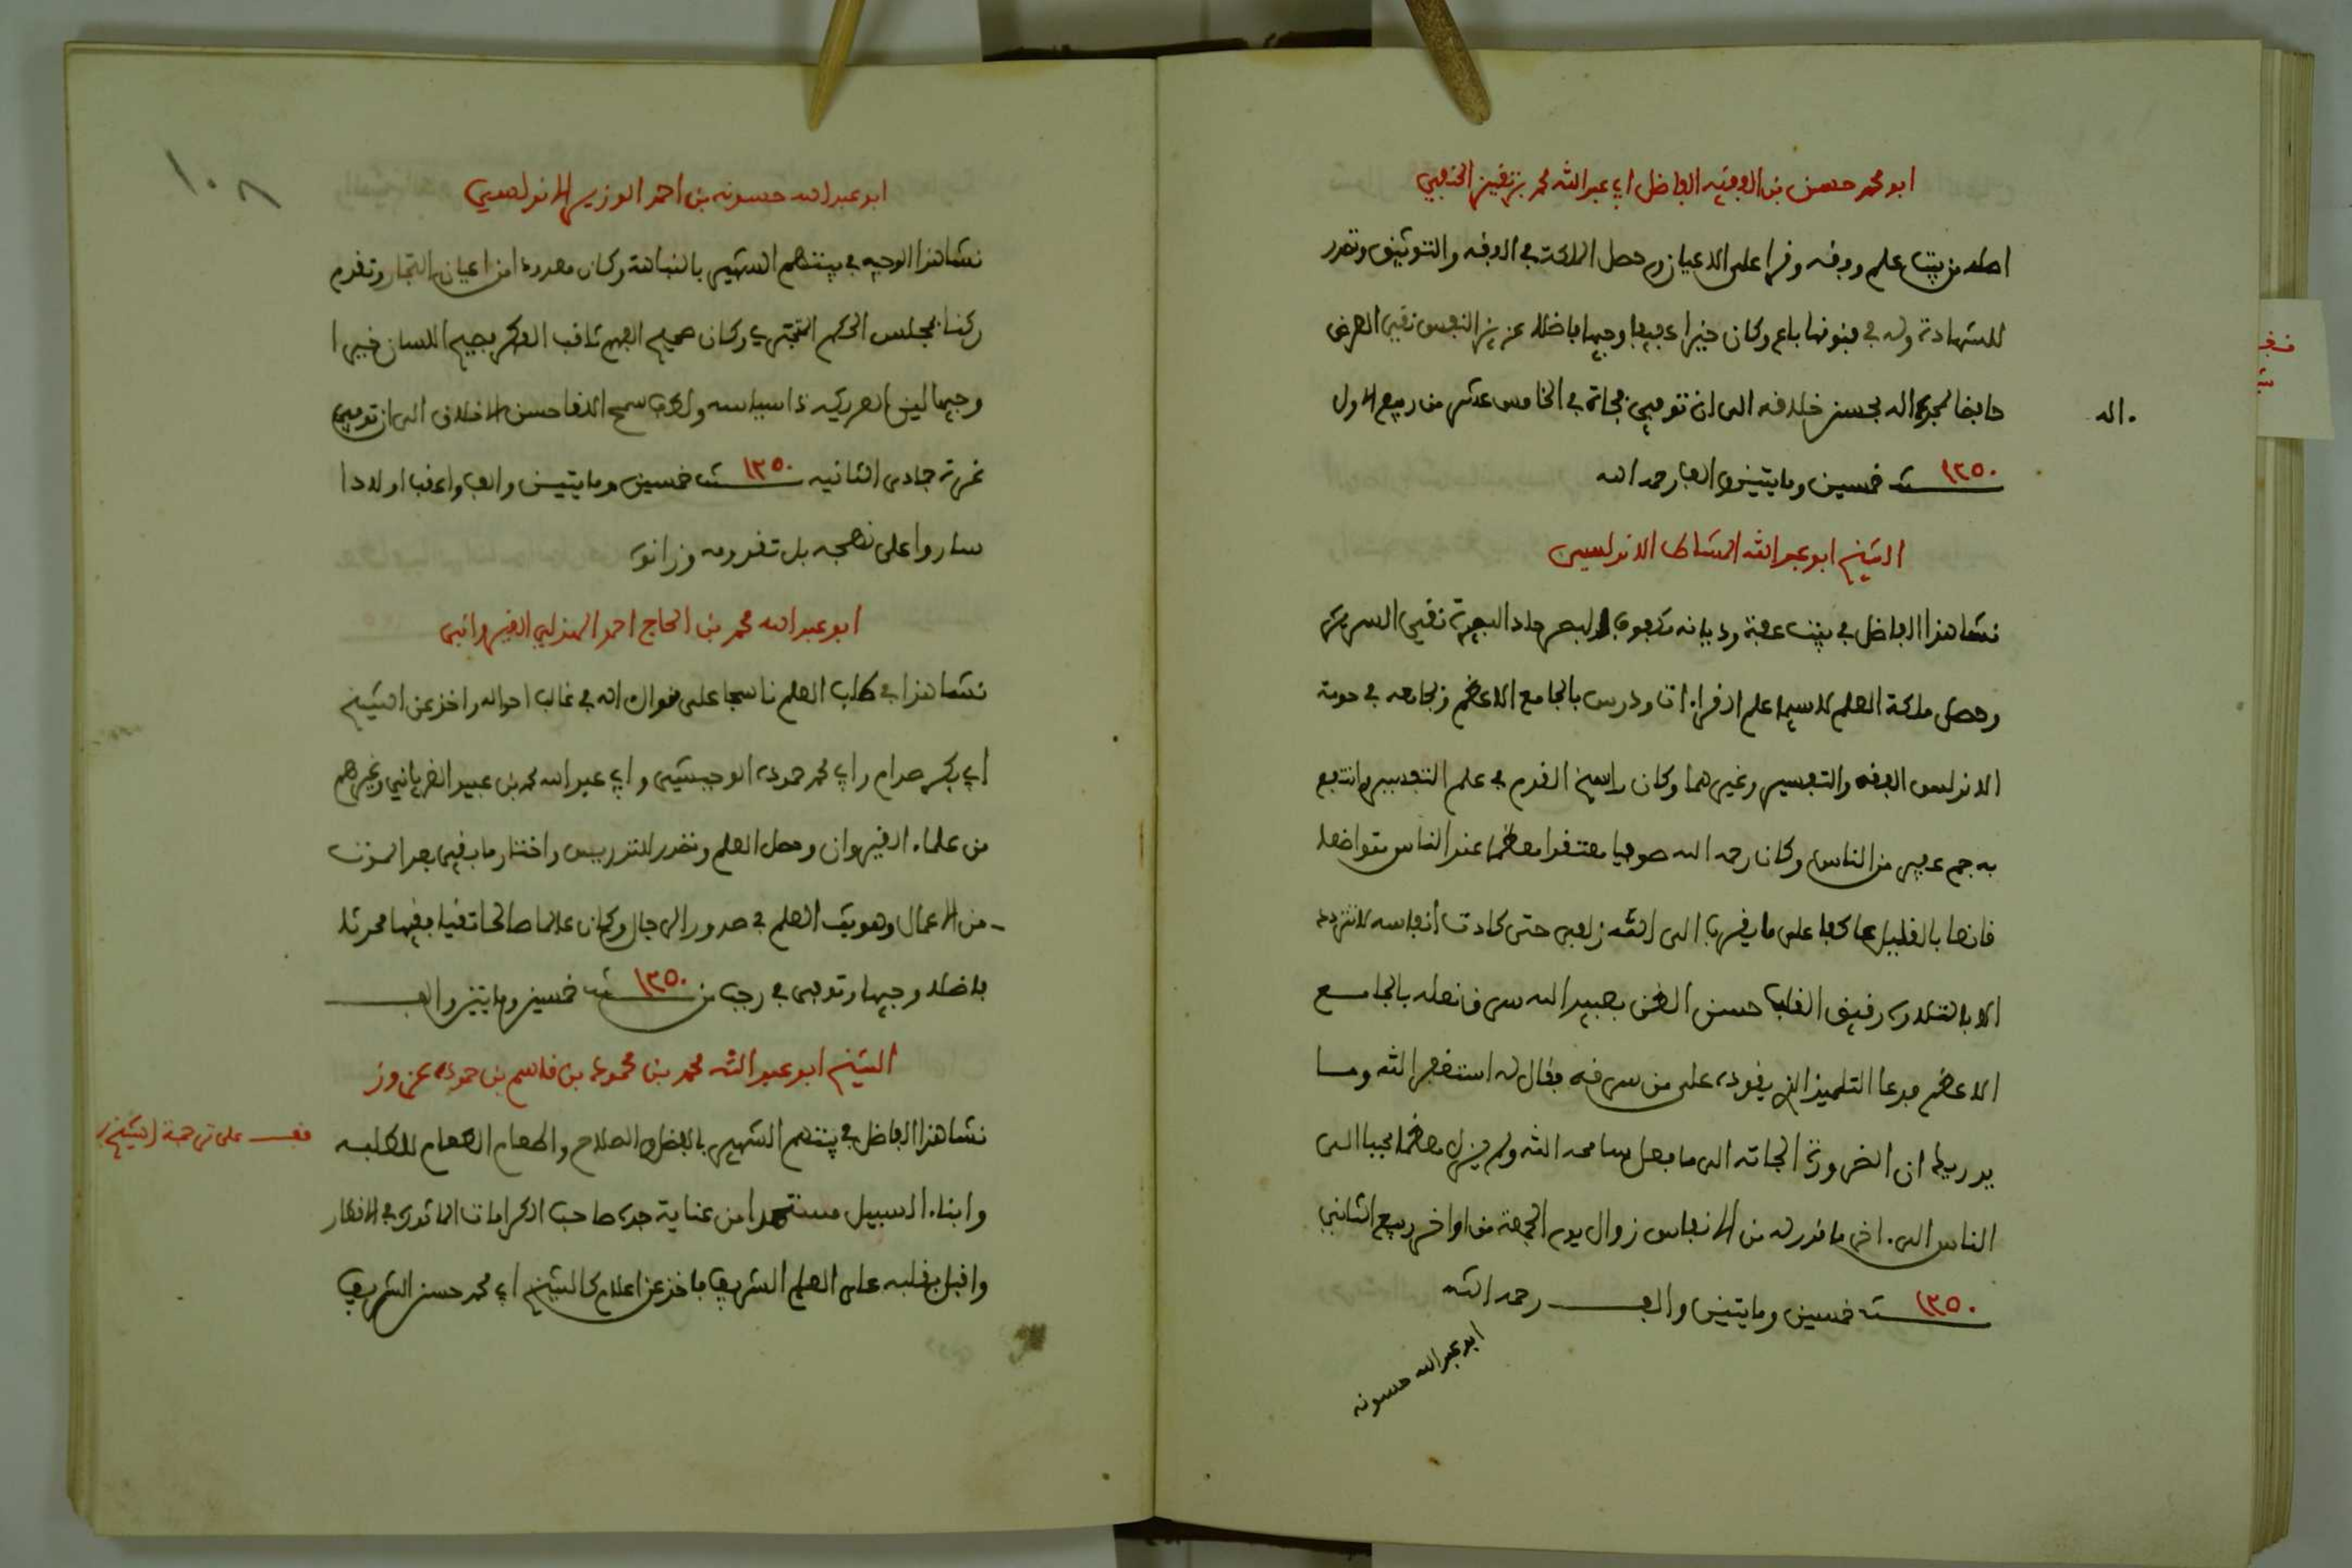 ابو محمد حسن بن الفقيه الفاضل ابي عبد الله محمد بن الحنفي
اصله من بيت علم وفقه وقرا على الاعيان وحصل الملكة في الفقه والتوثيق وتصدر
للشهادة وله في فنونها باع وكان خيرا عفيفا وجيها فاضلا عزيز النفس نقي العرض
حافظا لمجد اله بحسن خلاقه الى ان توفي فجاة في الخامس عشر من ربيع الاول
اله
سنة ١٢٥٠ خمسين ومايتين والف رحمه الله
الشيخ ابو عبد الله المشاط الاندلسي
نشا هذا الفاضل في بيت عفة وديانه مكفوف البصر حاد البصيرة نقي السريرة
وحصل ملكة العلم لاسيما علم القراءات ودرس بالجامع الاعظم وبجامعه في حومة
الاندلس الفقه والتفسير وغيرهما وكان راسخ القدم في علم التفسير وانتفع
به جم غفير من الناس وكان رحمه الله صوفيا معتقدا معظما عند الناس متواضعا
قانعا بالقليل عاكفا على ما يقرب الى الله زلفى حتى كادت انفاسه لا تتردد
الا بالتلاوة رقيق القلب حسن الظن بعبيد الله سرق نعله بالجامع
الاعظم فدعا التلميذ الذي يقوده على من سرقه فقال له استغفر الله وما
يدريك ان الضرورة الجاته الى ما فعل سامحه الله ولم يزل معظما محببا الى
الناس الى اخر ما قدر له من الانفاس زوال يوم الجمعة من اواخر ربيع الثاني
سنة ١٢٥٠ خمسين ومايتين والف رحمه الله
ابو عبد الله حسونه
١٠٨
ابو عبد الله حسونه بن احمد الوزير الاندلسي
نشا هذا الوجيه في بيتهم الشهير بالنباهة وكان معدودا من اعيان التجار وتقدم
ركنا بمجلس الحكم المتجري وكان صحيح الفهم ثاقب الفكر فصيح اللسان خبيرا
وجيها لين العريكه ذا سياسه ولطف سمح اللقا حسن الاخلاق الى ان توفي
غرة جمادى الثانيه سنة ١٢٥٠ خمسين ومايتين والف واعقب اولادا
ساروا على نهجه بل تقدموه وزانوه
ابو عبد الله محمد بن الحاج احمد الهذلي القيرواني
نشا هذا في طلب العلم ناسجا على منوال اله في غالب احواله واخذ عن الشيخ
ابي بكر صدام وابي محمد حمودة الوحيشي وابي عبد الله محمد بن عبيد الغرياني وغيرهم
من علماء القيروان وحصل العلم وتصدر للتدريس واختار ما يبقى بعد الموت
من الاعمال وهو بث العلم في صدور الرجال وكان عالما صالحا تقيا فقيها محدثا
فاضلا وجيها وتوفي في رجب من سنة ١٢٥٠ خمسين ومايتين والف
الشيخ ابو عبد الله محمد بن محمود بن قاسم بن حموده عزوز
نشا هذا الفاضل في بيتهم الشهير بالفضل والصلاح واطعام الطعام للطلبه
قف على ترجمة الشيخ
وابناء السبيل مستمدا من عناية جده صاحب الكرامات الماثورة في الاقطار
واقبل بقلبه على العلم الشريف فاخذ عن اعلام كالشيخ ابي محمد حسن الشريف